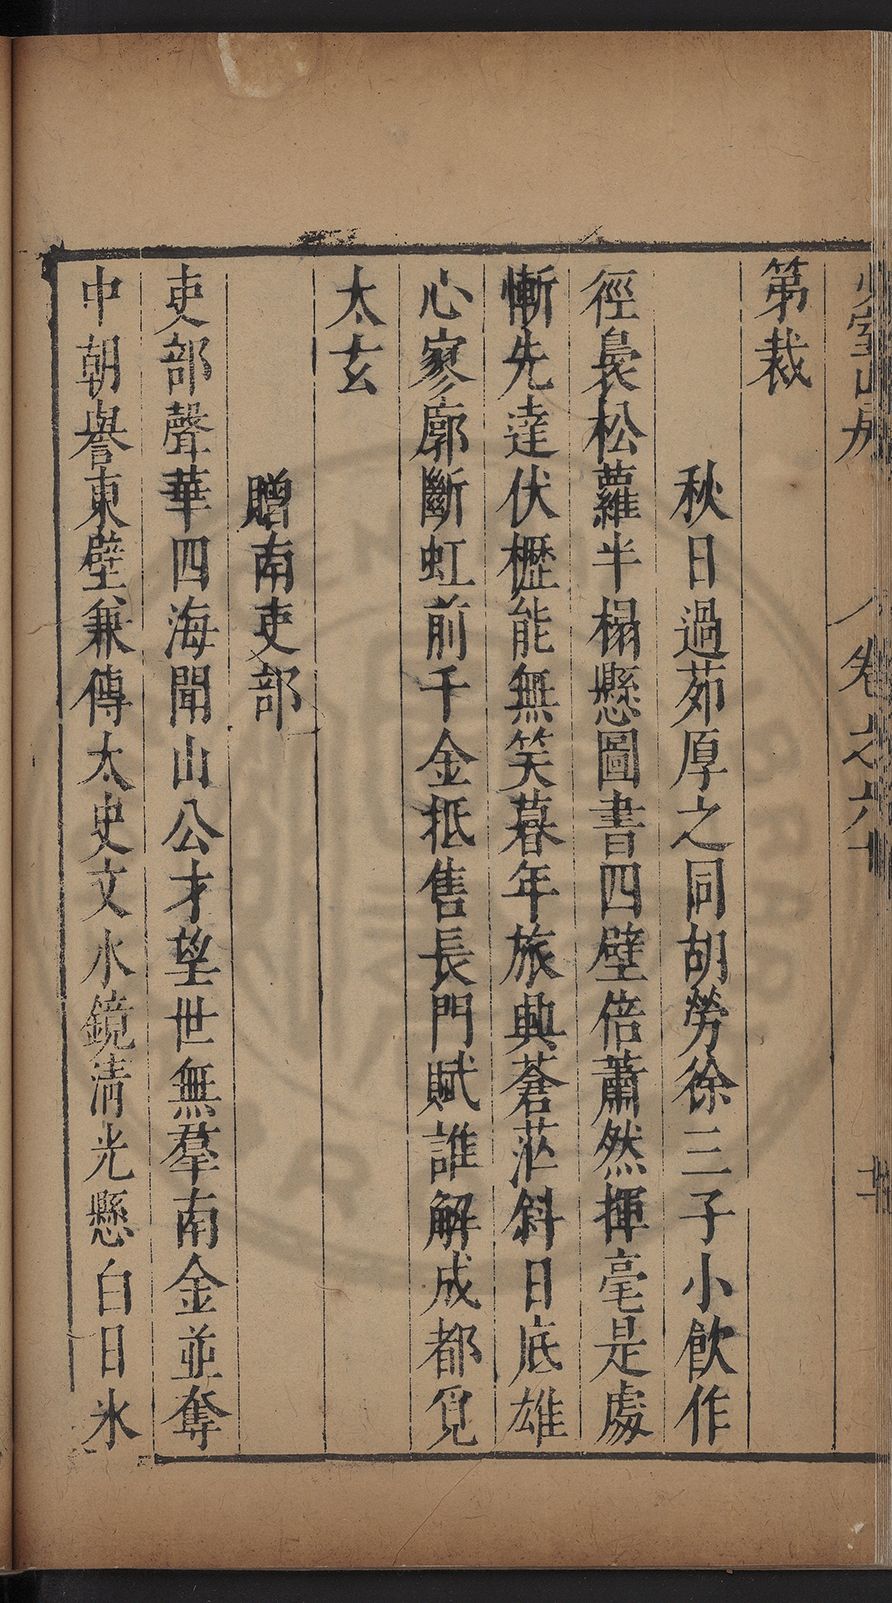 少室山房
卷之六十
第裁
秋日過茆厚之同胡勞徐三子小飲作
徑裊松蘿半榻懸圖書四壁倍蕭然揮毫是處
慚先達伏櫪能無笑暮年旅興蒼茫斜日底雄
心寥廓斷虹前千金抵售長門賦誰解成都覓
太玄
贈南吏部
吏部聲華四海聞山公才望世無羣南金並奪
中朝譽東壁兼傳太史文水鏡清光懸白日氷